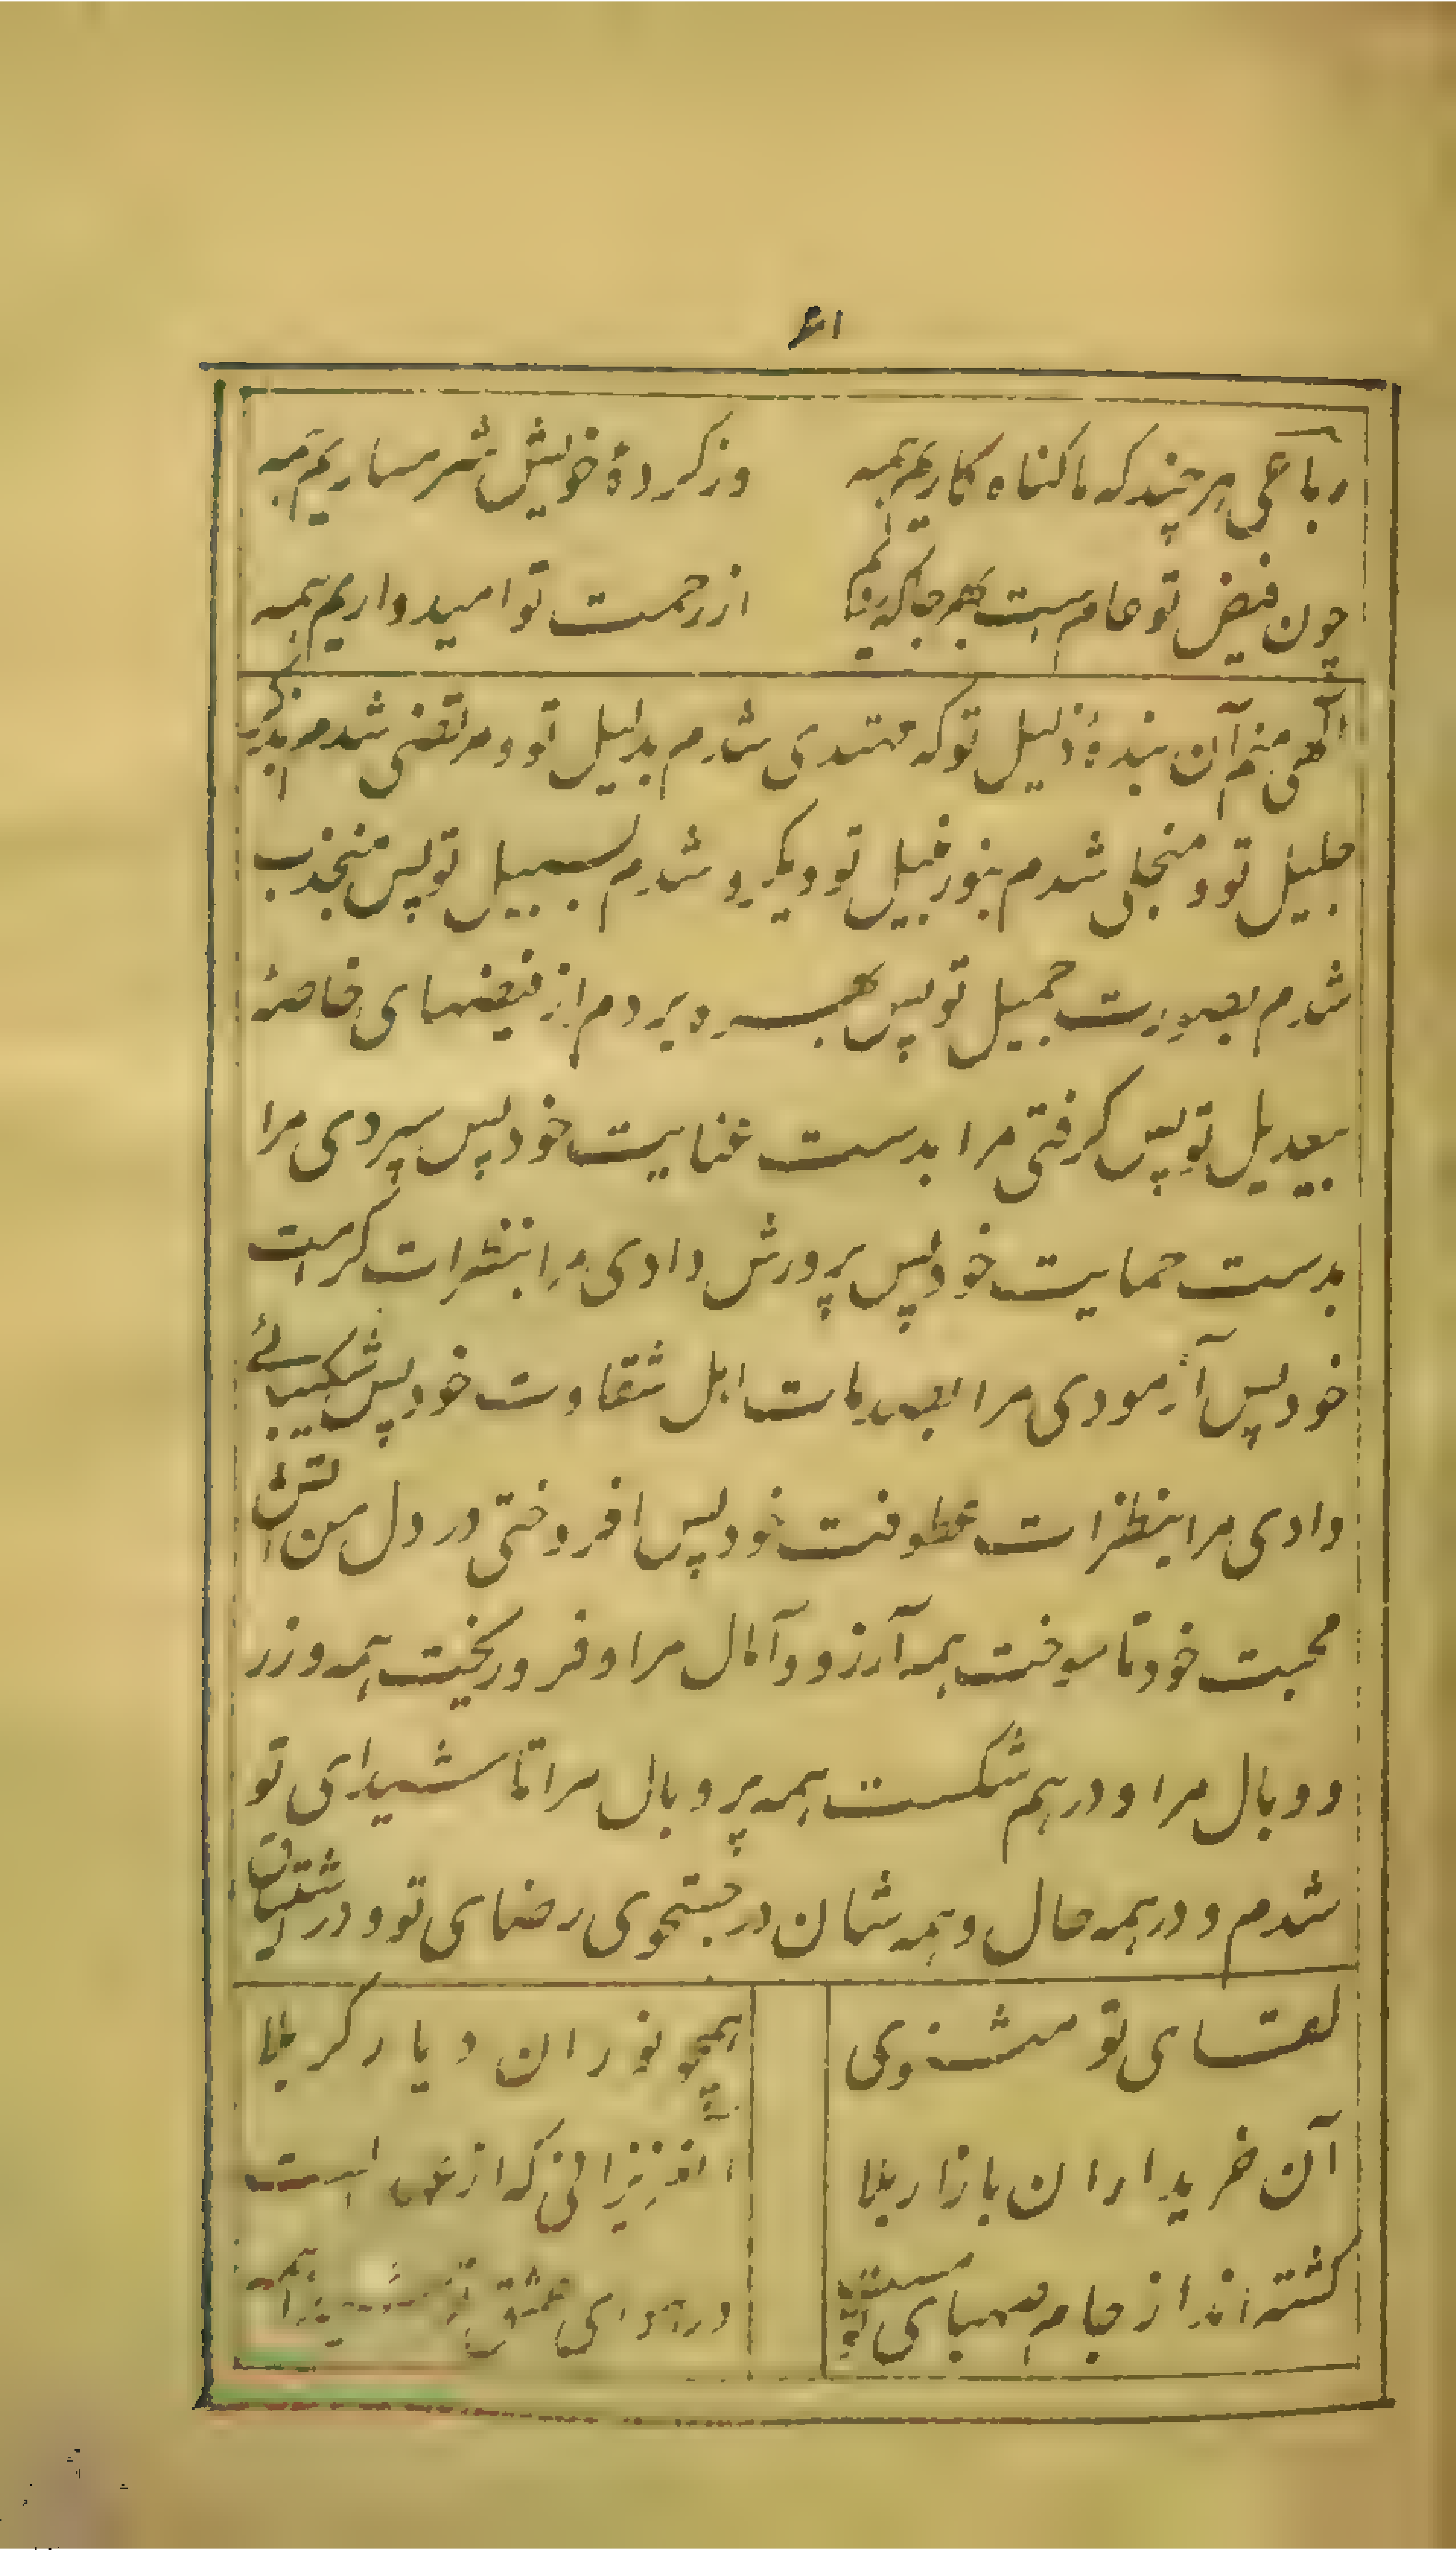 ۶۱
رباعی هرچند که ما کناه کاریم همه وز کردهٔ خویش شرمساریم همه
چون فیض تو عام ست بهر جا که رویم از رحمت تو امیدواریم همه
آلهی منم آن بندهٔ ذلیل تو که مهتدی شدم بدلیل تو و مرتقی شدم بذکر
جلیل تو و منجلی شدم بنور نبیل تو و یکرو شدم بسبیل تو پس منجذب
شدم بصورت جمیل تو پس بهره ور بردم از فیضهای خاصهٔ
بیعدیل تو پس کرفتی مرا بدست عنایت خود پس سپردی مرا
بدست حمایت خود پس پرورش دادی مرا بنشرات کرامت
خود پس آزمودی مرا بصدمات اهل شقاوت خود پس شکیبائے
دادی مرا بنظرات عطوفت خود پس افروختی در دل من آتش
محبت خود تا سوخت همه آرزو و آمال مرا و فرو ریخت همه وزر
و وبال مرا و درهم شکست همه پر و بال مرا تا شیدای تو
شدم و در همه حال و همه شان در جستجوی رضای تو و در اشتیاق
لقای تو مثنوی همچو نوران دیار کربلا
آن خریداران بازار بلا
کشته اند از جام صهبای تو مست در هوای عشق